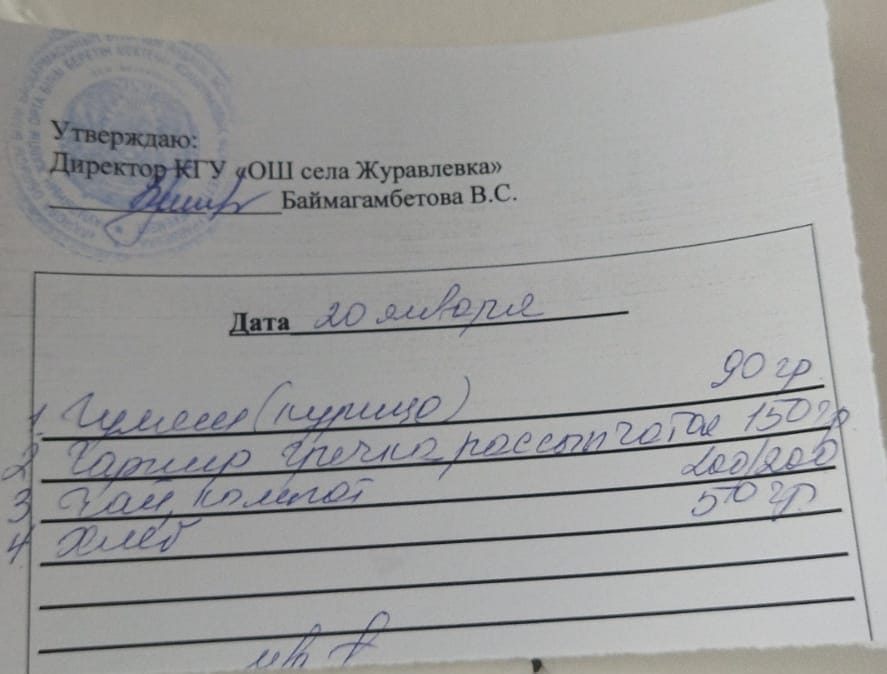 Утверждаю:
Директор КГУ «ОШ села Журавлевка»
Баймагамбетова В.С.
Дата 20 января
1. Гуляш (курица) 90 гр.
2. Гарнир гречка рассыпчатая 150 гр
3 Чай, компот 200/200
4. Хлеб 50 гр.